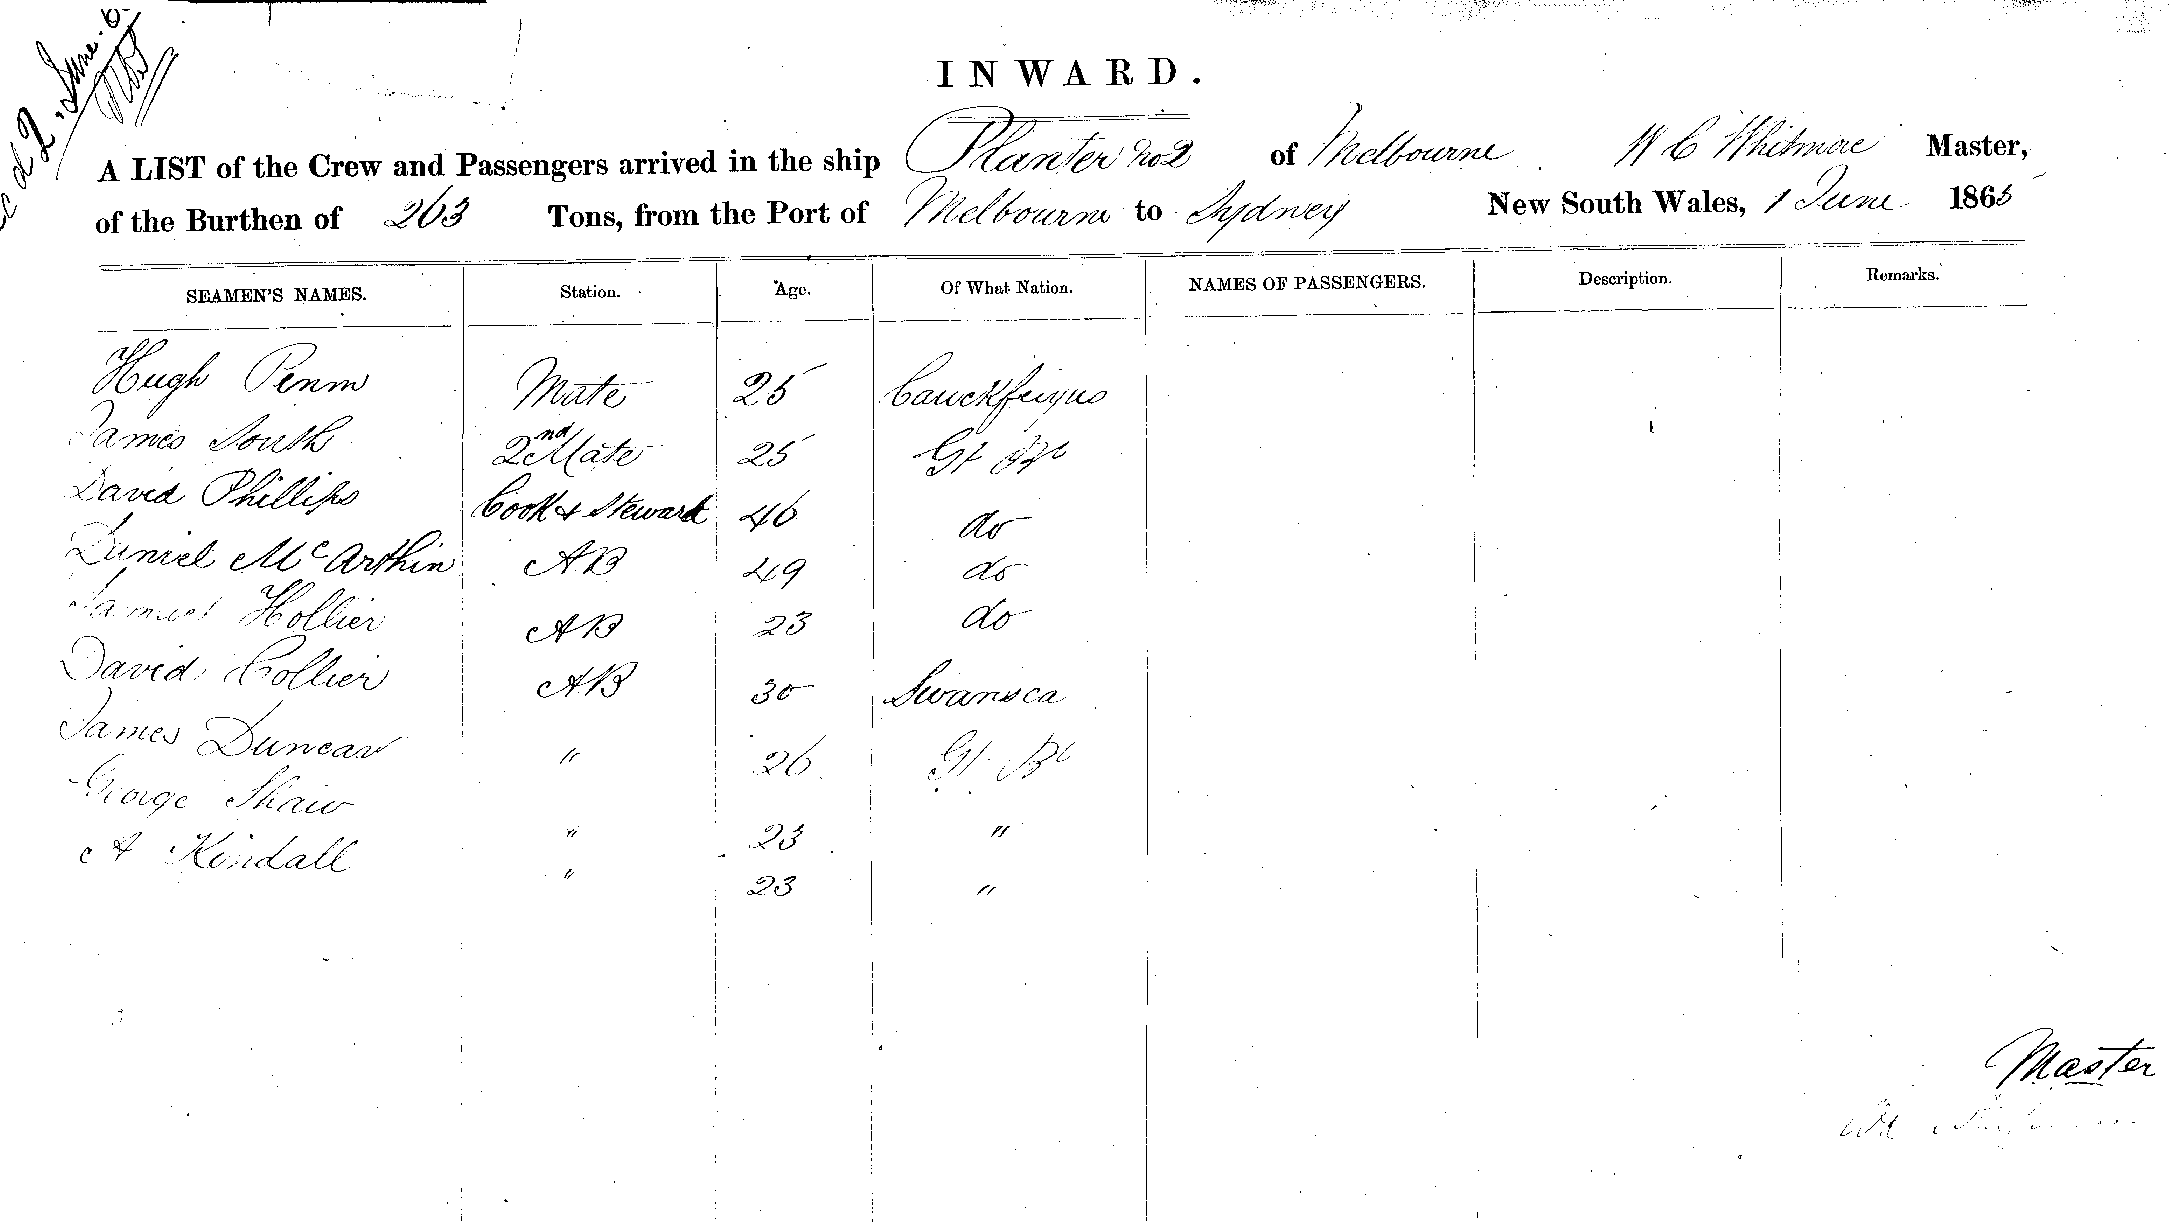 2 June
INWARD.
A LIST of the Crew and Passengers arrived in the ship Planter No2 of Melbourne W C Whitmore Master,
of the Burthen of 263 Tons, from the Port of Melbourne to Sydney New South Wales, 1 June 1865
SEAMEN'S NAMES. Station. Age. Of What Nation. NAMES OF PASSENGERS. Description. Remarks.
Hugh Penm Mate 25
James South 2nd Mate 25 Gt Bn
David Phillips Cook & Steward 46 do
Daniel McArthin AB 49 do
Samuel Hollier AB 23 do
David Collier AB 30 Swansea
James Duncan " 26 Gt Bn
George Shaw " 23 "
A Kindall " 23 "
Master